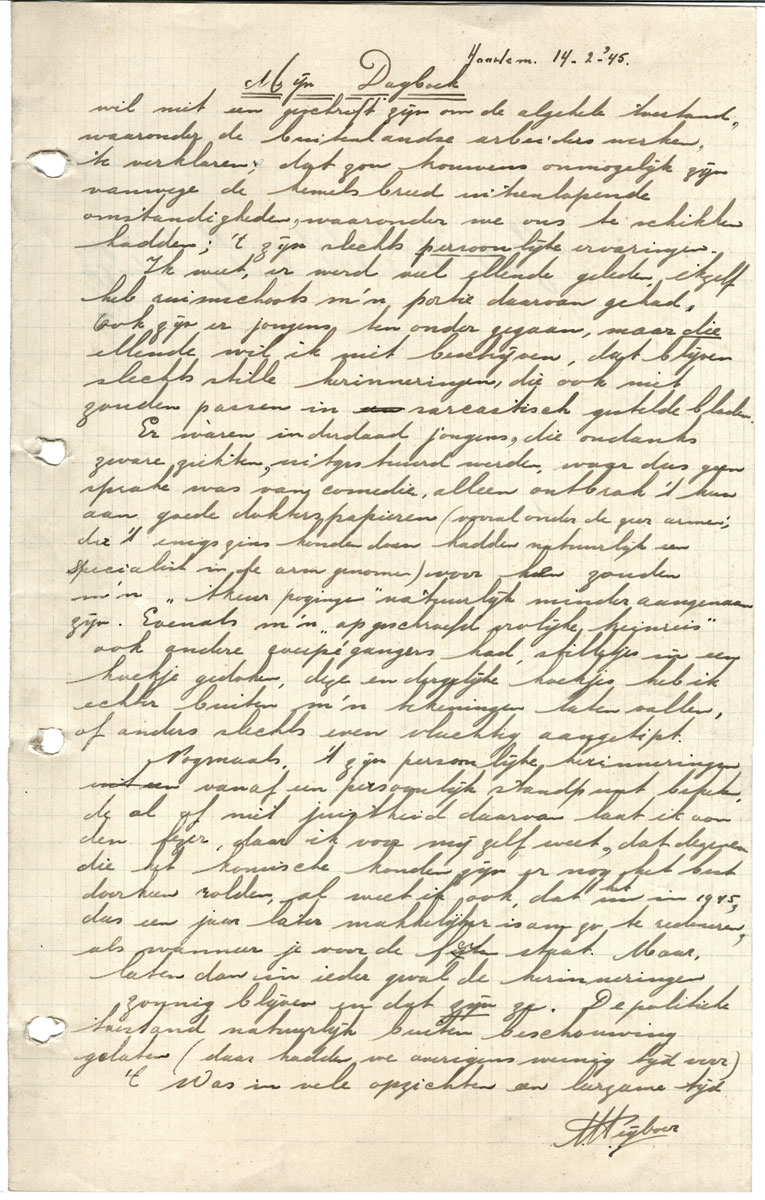 Haarlem. 14-2-'45.
Mijn Dagboek
wil niet een geschrift zijn om de algehele toestand,
waaronder de buitenlandse arbeiders werken,
te verklaren; dat zou trouwens onmogelijk zijn
vanwege de hemelsbreed uiteenlopende
omstandigheden, waaronder we ons te schikken
hadden; 't zijn slechts persoonlijke ervaringen.
Ik weet, er werd veel ellende geleden, ikzelf
heb ruimschoots m'n portie daarvan gehad,
ook zijn er jongens ten onder gegaan, maar die
ellende wil ik niet beschrijven, dat blijven
slechts stille herinneringen, die ook niet
zouden passen in sarcastisch gestelde bladen.
Er waren inderdaad jongens, die ondanks
zware ziekten, uitgestuurd werden, waar dus geen
sprake was van comedie, alleen ontbrak 't hun
aan goede dokterspapieren (vooral onder de zeer armen;
die 't enigszins konden doen hadden natuurlijk een
specialist in de arm genomen) voor hen zouden
m'n "afkeur pogingen" natuurlijk minder aangenaam
zijn. Evenals m'n "opgeschroefd vrolijke heenreis"
ook andere gangers had, stilletjes in een
hoekje gedoken, deze en dergelijke hoekjes heb ik
echter buiten m'n tekeningen laten vallen,
of anders slechts even vluchtig aangetipt.
Nogmaals, 't zijn persoonlijke herinneringen
vanaf een persoonlijk standpunt bekeken,
de al of niet juistheid daarvan laat ik aan
den lezer, daar ik voor mijzelf weet, dat degenen
die het komische konden zijn er nog het best
doorheen rolden, al weet ik ook, dat het nu in 1945,
dus een jaar later makkelijker is om zo te redeneren,
als wanneer je voor de feiten staat. Maar,
laten dan in ieder geval de herinneringen
zonnig blijven en dat zijn ze. De politieke
toestand natuurlijk buiten beschouwing
gelaten (daar hadden we overigens weinig tijd voor)
't Was in vele opzichten een leerzame tijd